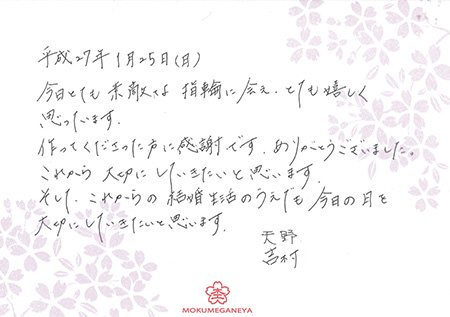 平成27年1月25日(日)
今日とても素敵な指輪に会え、とても嬉しく
思っています。
作ってくださった方に感謝です。ありがとうございました。
これから大切にしていきたいと思います。
そして、これからの結婚生活のうえでも今日の日を
大切にしていきたいと思います。
天野
吉村
MOKUMEGANEYA